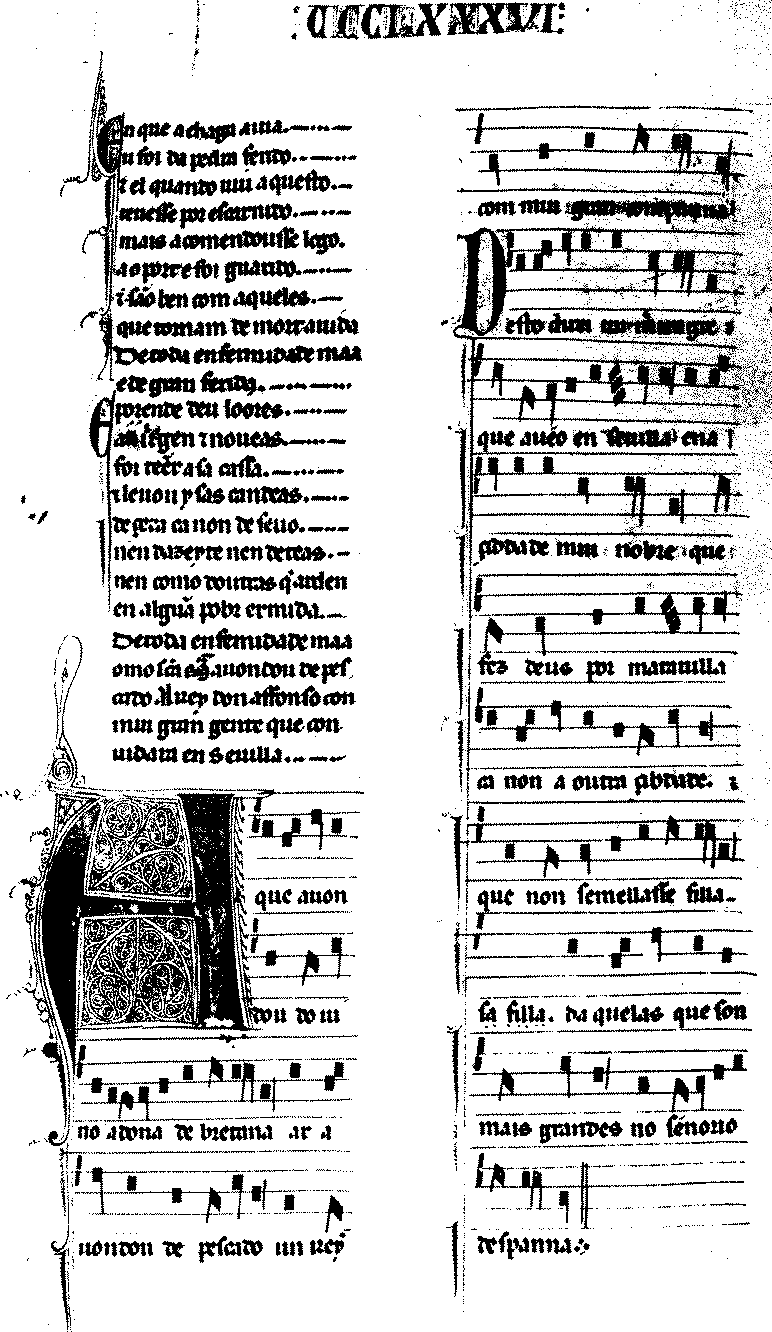 CCCLXXXVI
En que a chaga auia.
u foi da pedra ferido.
t el quando uiu aquesto.
teuesse por escarnido.
mais acomendousse logo.
ao poree foi guarido.
t são ben com aqueles.
que tornam de mort a uida
De toda enfermidade maa
e de gran ferida.
E porende deu loores.
aa uirgen t noueas.
foi tecer a sa cassa.
t leuou y sas candeas.
de cera ca non de seuo.
nen dazeyte nen de teas.
nen como doutras q̃ arden
en algũa pobr ermida.
De toda enfermidade maa
omo sca m̃ auondou de pes
cado al Rey don affonso con
mui gran gente que con
uidara en Seuilla.
A que auon
dou do ui
no a dona de bretanna ar a
uondou de pescado un Rey
com mui gran conpanna
Desto dun mui gran
que aueo en seuilla ena
cidade mui nobre que
fez deus por marauilla
ca non a outra cibdade. t
que non semellasse filla.
sa filla. da quelas que son
mais grandes no sennorio
despanna.